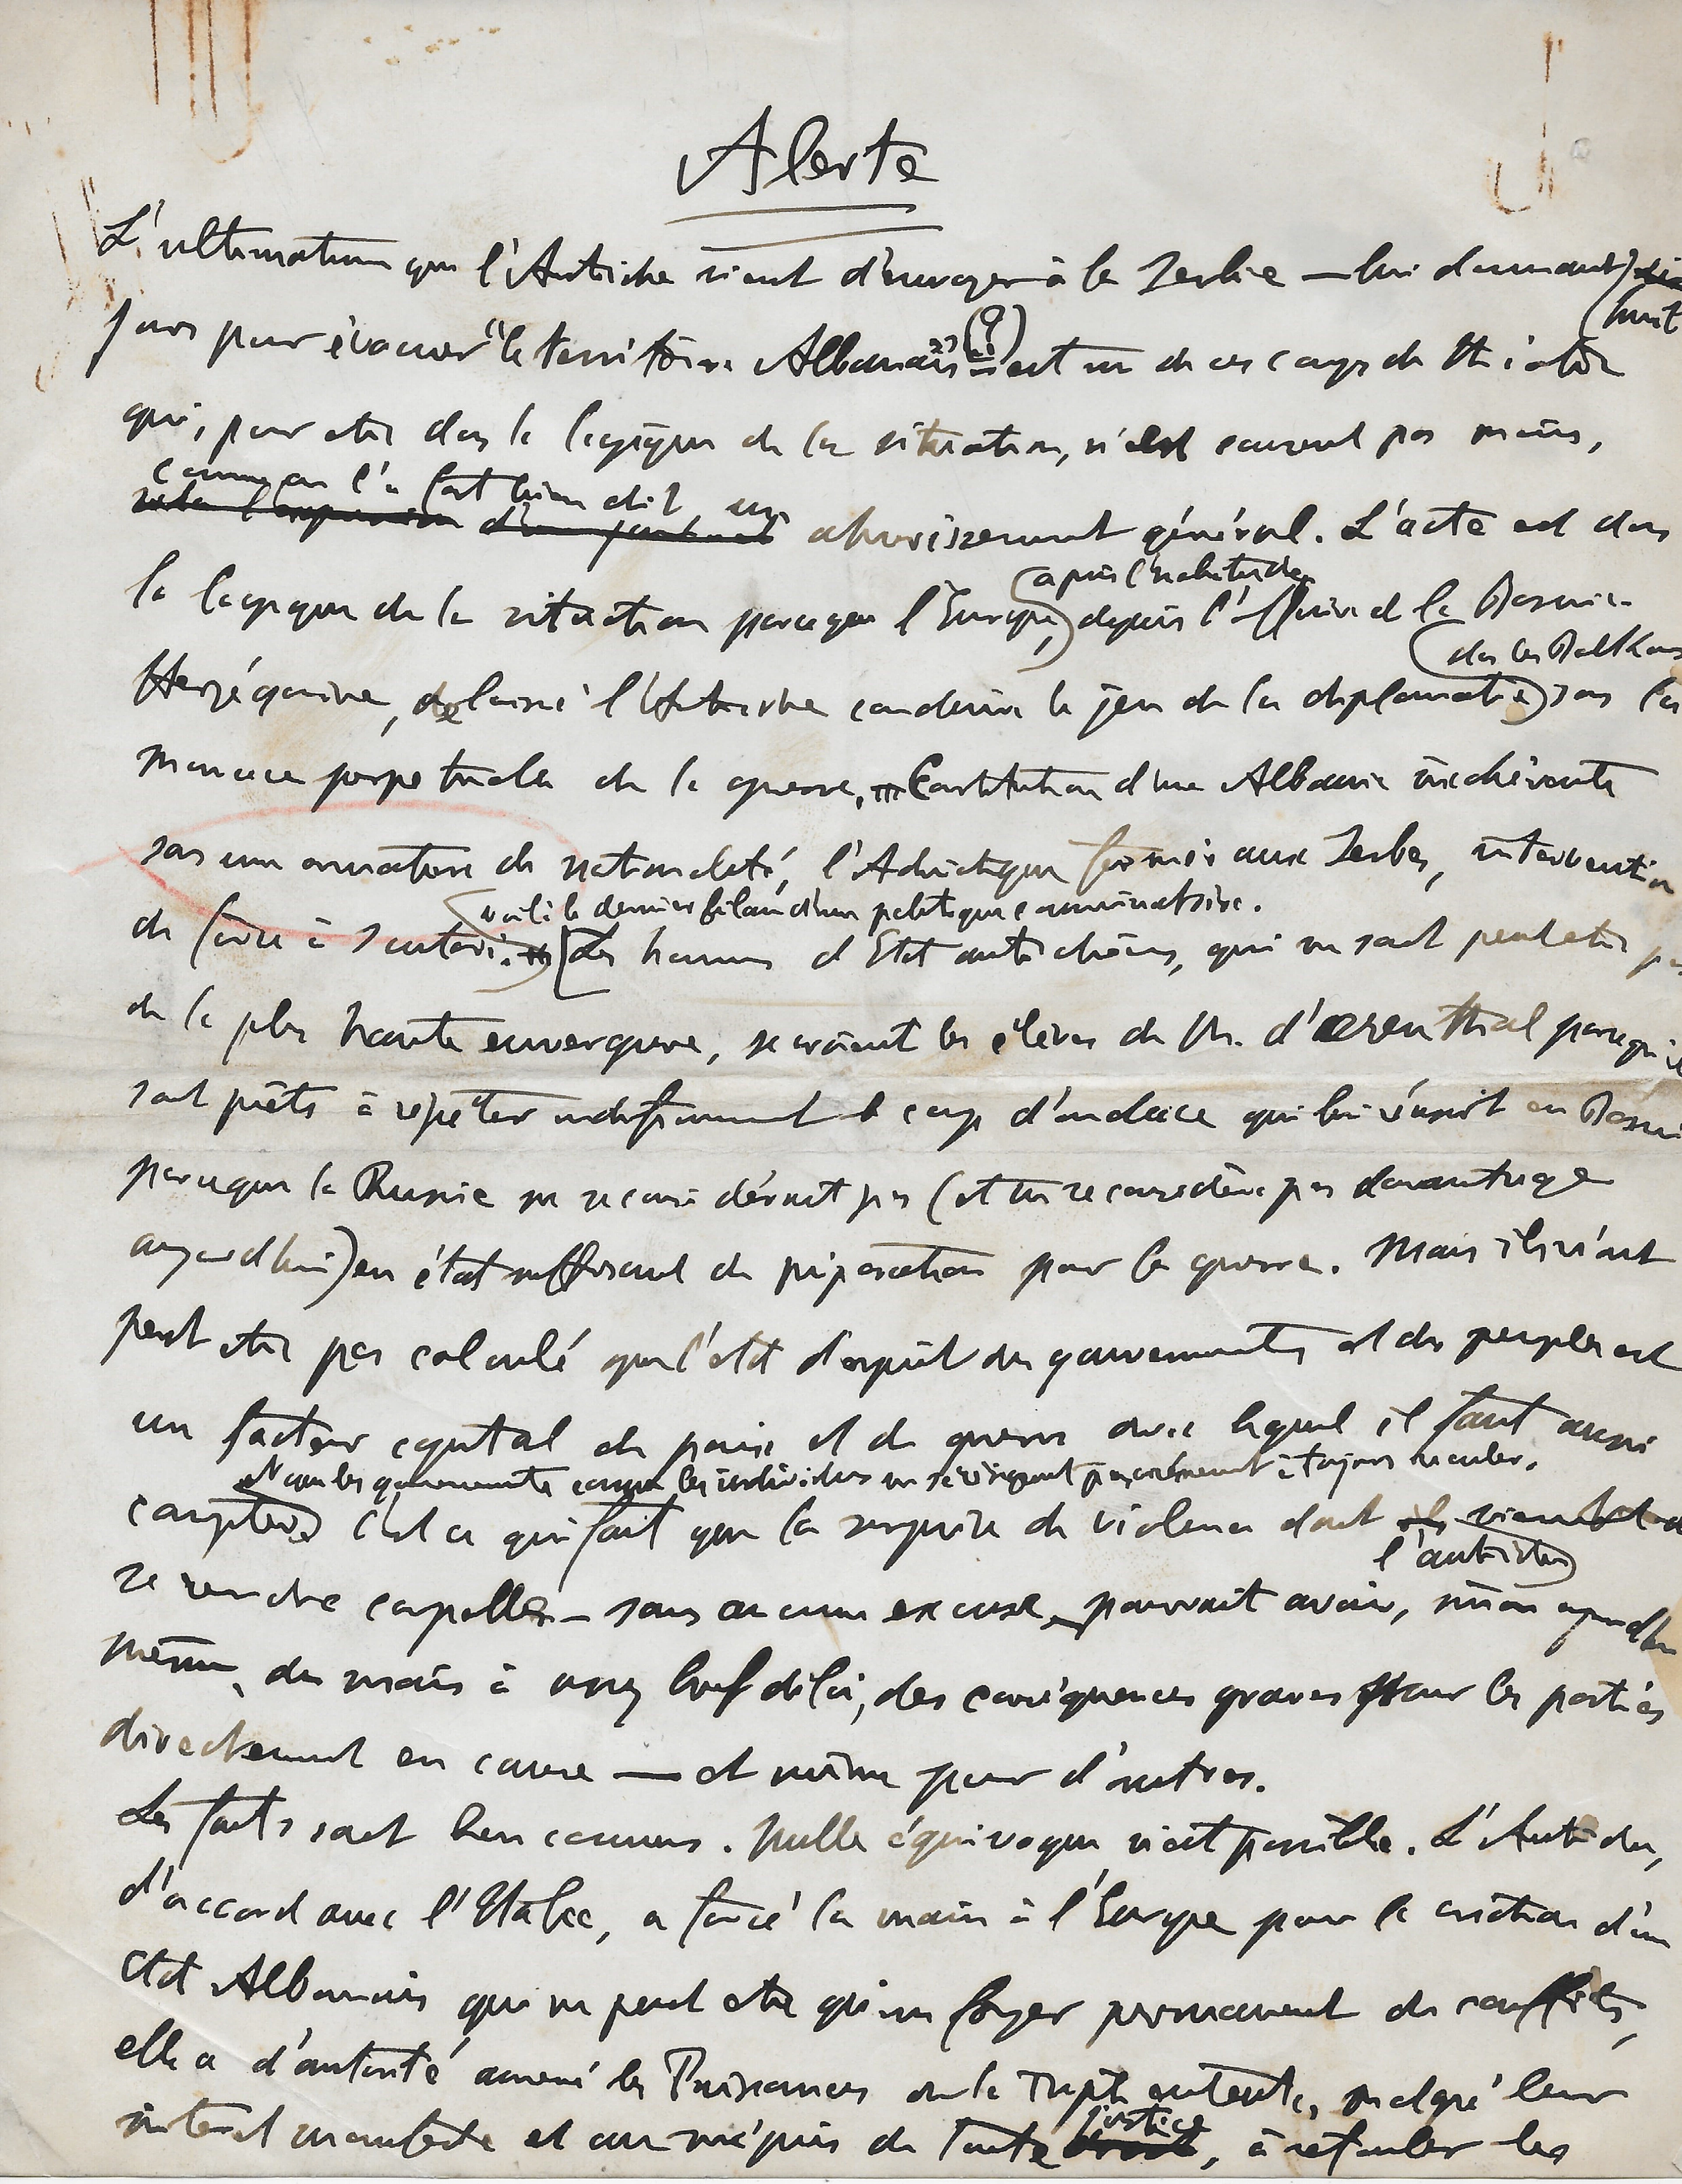 Alerte
L'ultimatum que l'Autriche vient d'envoyer à la Serbie — lui donnant huit
jours pour évacuer "le territoire Albanais" (?) — est un de ces coups de théâtre
qui, pour être dans la logique de la situation, n'en causent pas moins,
comme on l'a fort bien dit, un ahurissement général. L'acte est dans
la logique de la situation parce que l'Europe, a pris l'habitude, depuis l'affaire de la Bosnie-
Herzégovine, de laisser l'Autriche conduire le jeu de la diplomatie dans les Balkans sous la
menace perpétuelle de la guerre. Constitution d'une Albanie inachevante
sans une armature de nationalité, l'Adriatique fermée aux Serbes, intervention
de force à Scutari, voilà le dernier bilan d'une politique comminatoire. Les hommes d'Etat autrichiens, qui ne sont peut être pas
de la plus haute envergure, se croient les élèves de M. d'Ærenthal parce qu'ils
sont prêts à répéter indéfiniment le coup d'audace qui lui réussit en Bosnie
parce que la Russie ne se considérait pas (et ne se considère pas davantage
aujourd'hui) en état suffisant de préparation pour la guerre. Mais ils n'ont
peut être pas calculé que l'état d'esprit des gouvernements et des peuples est
un facteur capital de paix et de guerre avec lequel il faut aussi
compter. Non les gouvernements comme les individus ne se résignent pas aisément à toujours reculer. C'est ce qui fait que la surprise de violence dont vient de
se rendre coupable l'Autriche — sans aucune excuse — pourrait avoir, sinon aujourd'hui
même, du moins à assez bref délai, des conséquences graves pour les parties
directement en cause — et même pour d'autres.
Les faits sont bien connus. Nulle équivoque n'est possible. L'Autriche,
d'accord avec l'Italie, a forcé la main à l'Europe pour la création d'un
état Albanais qui ne peut être qu'un foyer permanent de conflits,
elle a d'autorité amené les Puissances de la Triple entente, malgré leur
intérêt manifeste et au mépris de toute justice, à refouler les